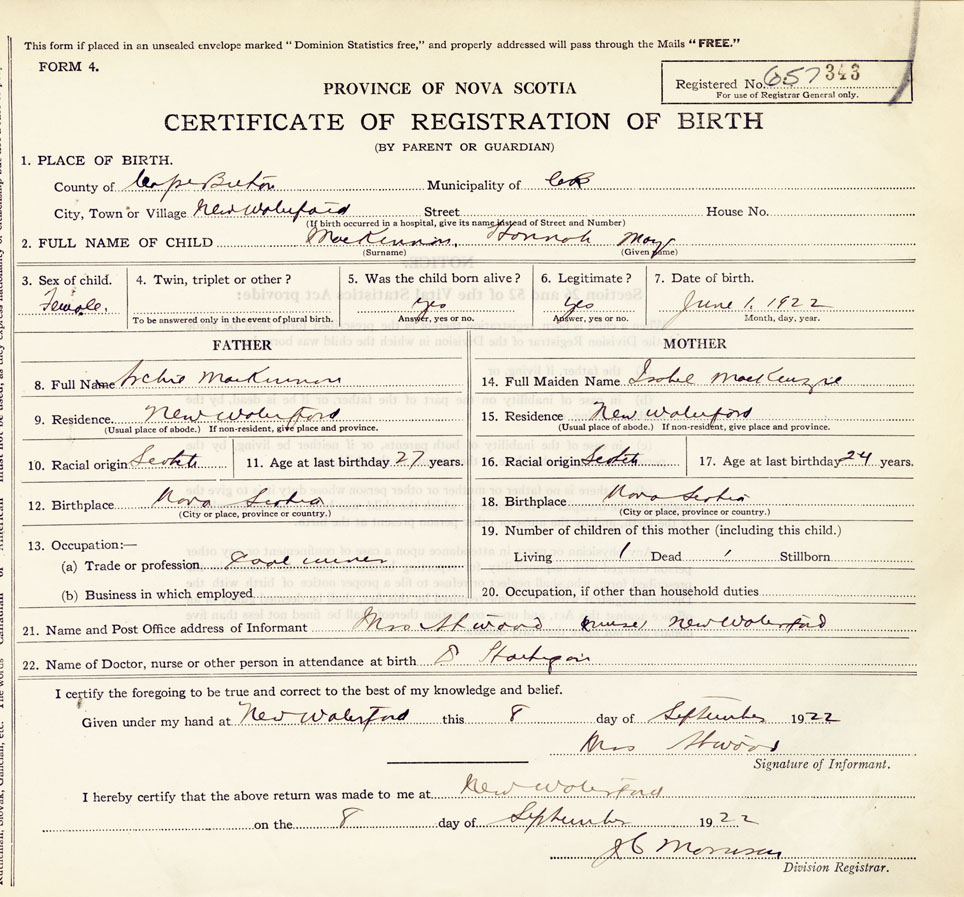 This form if placed in an unsealed envelope marked "Dominion Statistics free," and properly addressed will pass through the Mails "FREE."
FORM 4.
Registered No. 657 343
For use of Registrar General only.
PROVINCE OF NOVA SCOTIA
CERTIFICATE OF REGISTRATION OF BIRTH
(BY PARENT OR GUARDIAN)
1. PLACE OF BIRTH.
County of Cape Breton Municipality of CB
City, Town or Village New Waterford Street House No.
(If birth occurred in a hospital, give its name instead of Street and Number)
2. FULL NAME OF CHILD MacKinnon, Hannah May
(Surname) (Given name)
3. Sex of child. 4. Twin, triplet or other? 5. Was the child born alive? 6. Legitimate? 7. Date of birth.
Female. Yes Yes June 1, 1922
To be answered only in the event of plural birth. Answer, yes or no. Answer, yes or no. Month, day, year.
FATHER MOTHER
8. Full Name Archie MacKinnon 14. Full Maiden Name Isabel MacKenzie
9. Residence New Waterford 15. Residence New Waterford
(Usual place of abode.) If non-resident, give place and province. (Usual place of abode.) If non-resident, give place and province.
10. Racial origin Scotch 11. Age at last birthday 27 years. 16. Racial origin Scotch 17. Age at last birthday 24 years.
12. Birthplace Nova Scotia 18. Birthplace Nova Scotia
(City or place, province or country.) (City or place, province or country.)
19. Number of children of this mother (including this child.)
13. Occupation:—
Living 1 Dead 1 Stillborn
(a) Trade or profession Coal miner
(b) Business in which employed 20. Occupation, if other than household duties
21. Name and Post Office address of Informant Mrs Atwood (nurse) New Waterford
22. Name of Doctor, nurse or other person in attendance at birth
I certify the foregoing to be true and correct to the best of my knowledge and belief.
Given under my hand at New Waterford this 8 day of September 1922
Mrs Atwood
Signature of Informant.
I hereby certify that the above return was made to me at New Waterford
on the 8 day of September 1922
J C Morrison
Division Registrar.